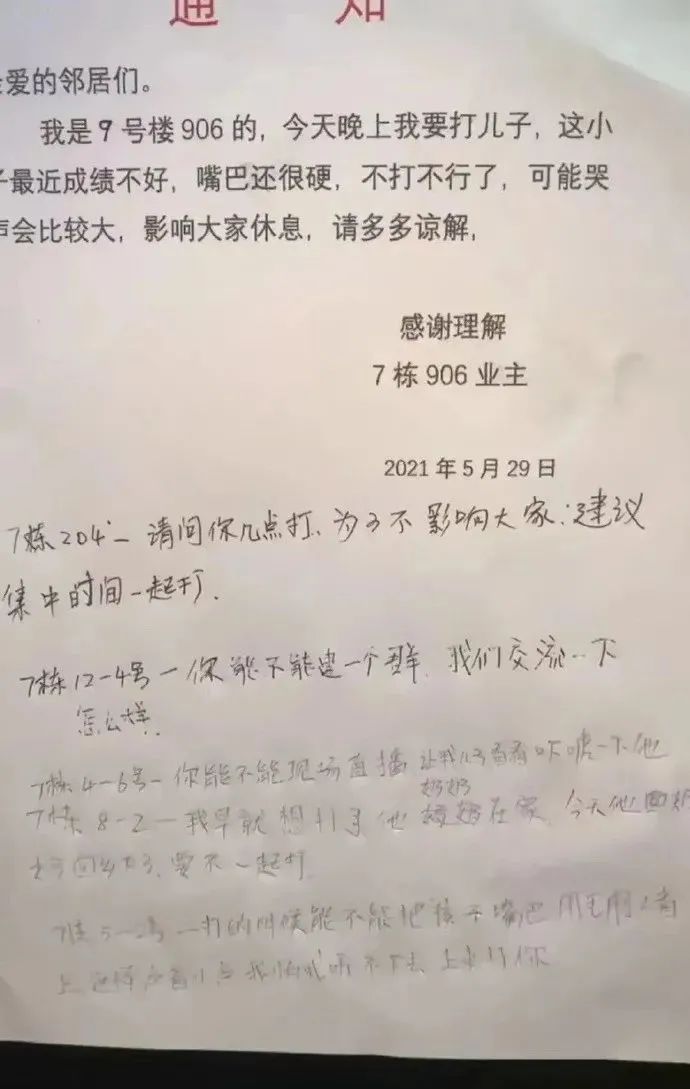 通 知
爱的邻居们。
我是9号楼906的，今天晚上我要打儿子，这小
子最近成绩不好，嘴巴还很硬，不打不行了，可能哭
声会比较大，影响大家休息，请多多谅解，
感谢理解
7栋906业主
2021年5月29日
7栋204-请问你几点打、为了不影响大家:建议
集中时间一起打.
7栋12-4号-你能不能建一个群，我们交流一下
怎么样.
7栋4-6号-你能不能现场直播 让我儿子看看吓唬一下他
7栋8-2-我早就想打了他奶奶在家，今天他
要不一起打.
打的时候能不能把孩子嘴巴用毛巾
上